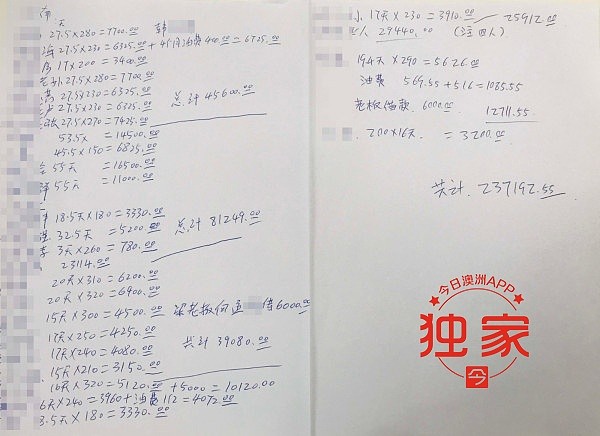 天
27.5×280=7700.00
27.5×230=6325.00+45月油费400.00=6725.00
17×200=3400.00
27.5×280=7700.00
27.5×230=6325.00
27.5×230=6325.00
27.5×270=7425.00
总计45600.00
53.5天=14500.00
45.5×150=6825.00
55天=16500.00
55天=11000.00
18.5天×180=3330.00
32.5天=5200.00
3天×260=780.00
总计81249.00
23114.00
20天×310=6200.00
20天×320=6400.00
15天×300=4500.00
老板向 借6000.00
17天×250=4250.00
17天×240=4080.00
共计39080.00
15天×210=3150.00
16天×320=5120.00+5000=10120.00
6天×240=3960+油费112=4072.00
3.5天×180=3330.00
17天×230=3910.00
25912.00
人29440.00(四人)
194天×290=5626.00
油费569.55+516=1085.55
老板借款.6000.00
12711.55
200×16天.=3200.00
共计.237192.55
今日澳洲APP
独家
今